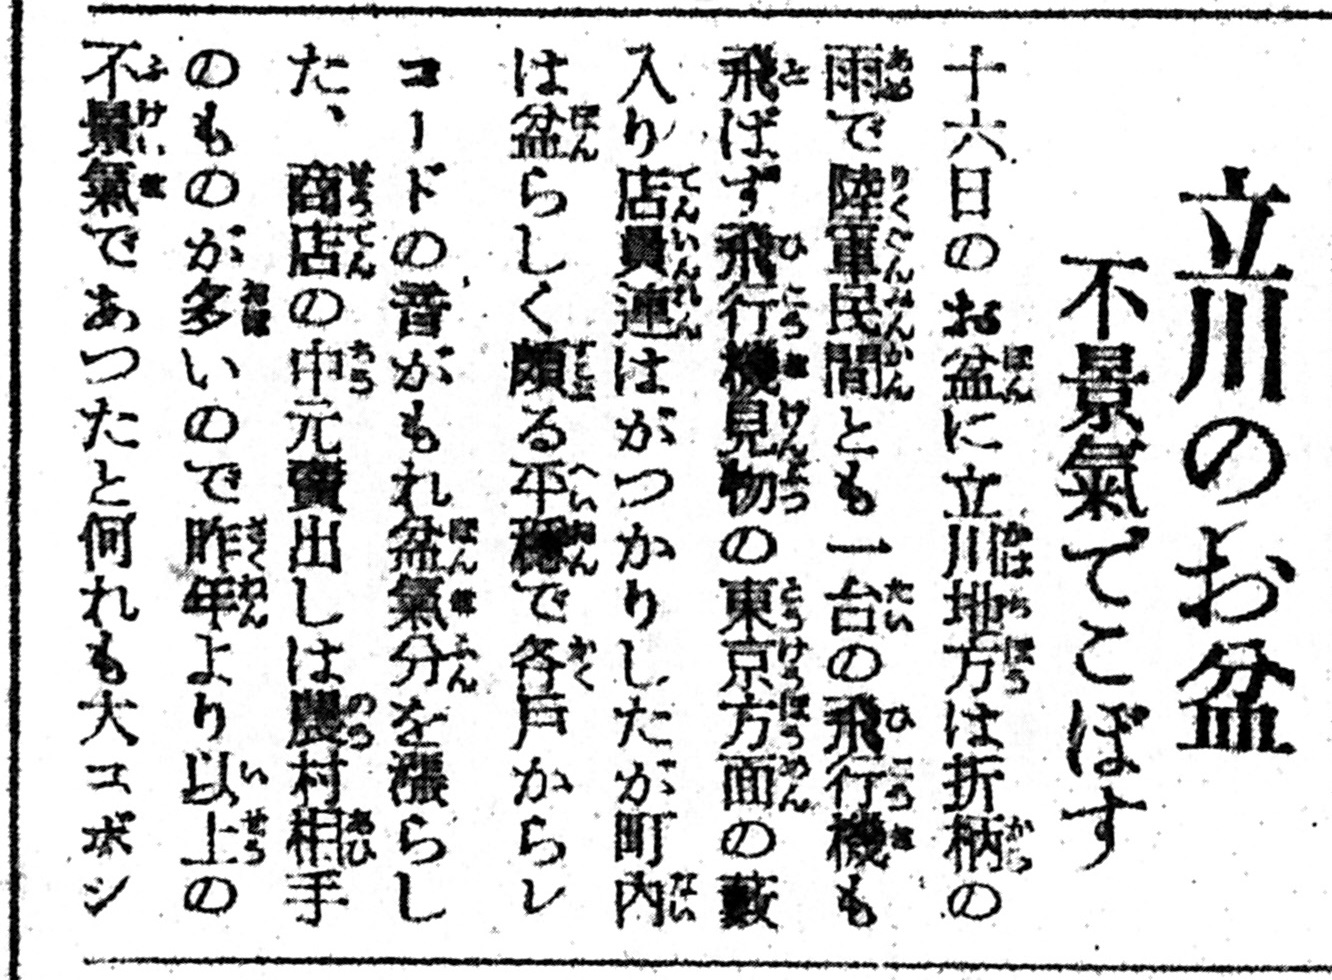 立川のお盆
不景氣でこぼす
十六日のお盆に立川地方は折柄の
雨で陸軍民間とも一台の飛行機も
飛ばず飛行機見物の東京方面の藪
入り店員連はがつかりしたが町內
は盆らしく頗る平穩で各戸からレ
コードの音がもれ盆氣分を漲らし
た、商店の中元賣出しは農村相手
のものが多いので昨年より以上の
不景氣であつたと何れも大コボシ